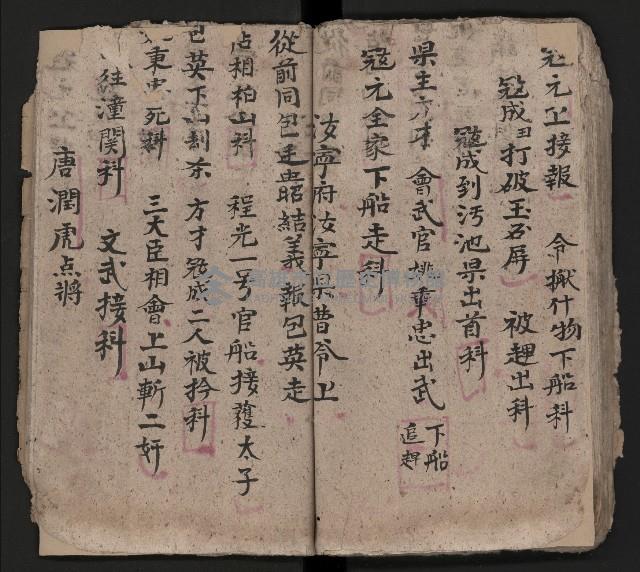 寇元上接報 令搬什物下船科
寇成曰打破玉石屏 被趕出科
寇成到沔池県出首科
県主方才 會武官姚秉忠出武 下船追趕
寇元全家下船走科
汝寧府汝寧県曹爺上
從前同包廷昭結義報包英走
占相柏山科 程光一号官船接獲太子
包英下山刦杀 方才寇成二人被拎科
秉忠死科 三大臣相會上山斬二奸
往潼関科 文武接科
唐潤虎点將